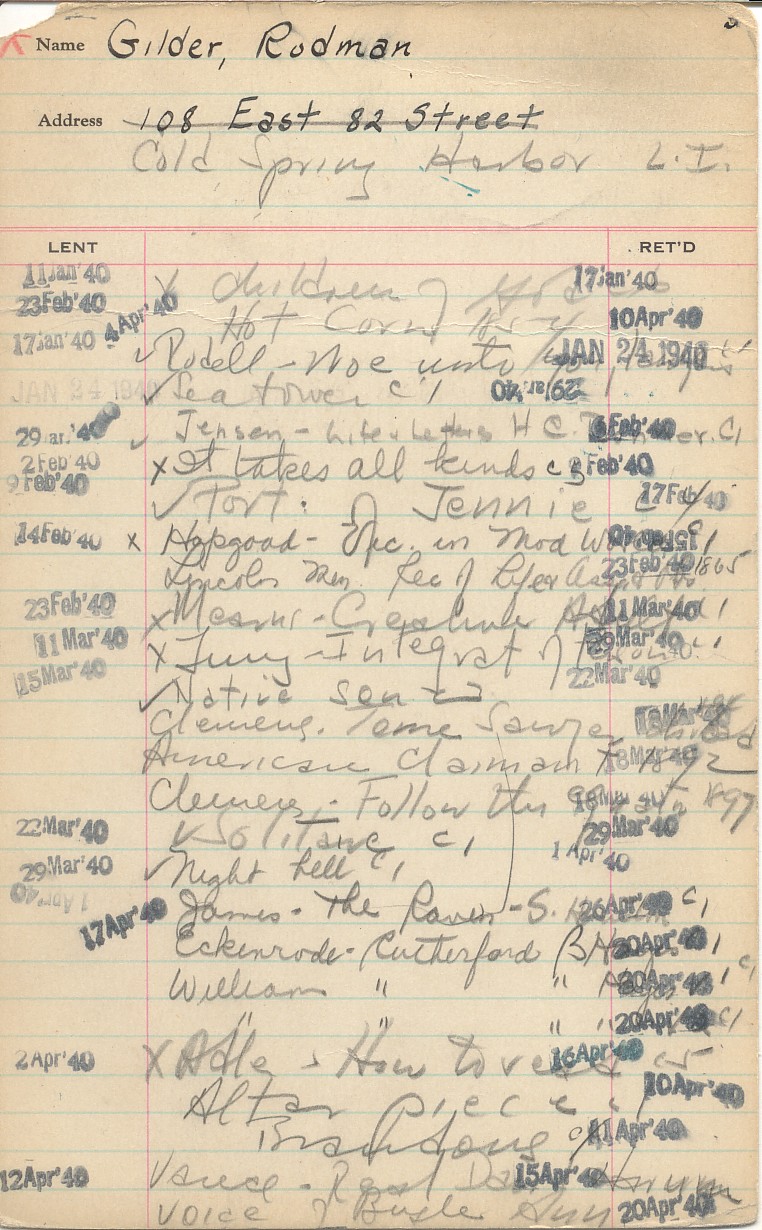 Name Gilder, Rodman
Address 108 East 82 Street
Cold Spring Harbor L.I.
LENT RET'D
11 Jan '40 X Children of 17 Jan '40
23 Feb '40 4 Apr '40 Hot Corn 10 Apr '40
17 Jan '40 ✓ Rodell - Woe unto JAN 24 1940
JAN 24 1940 ✓ Sea tower c1 29 '40
29 '40 ✓ Jensen - Life & Letters H C. 6 Feb '40 c1
2 Feb '40 X It takes all kinds c3 Feb '40
9 Feb '40 ✓ Port. of Jennie c1 17 Feb '40
14 Feb '40 X Hapgood - in Mod 15 Feb '40 c1
Lincoln 23 Feb '40 1865
23 Feb '40 X Mearns - Creative 11 Mar '40
11 Mar '40 X Jung - Integrat of Mar '40
15 Mar '40 22 Mar '40
✓ Native Son
Clemens. Tome Sawyer 18 Mar '40
American Claimant 18 Mar '40 1892
Clemens - Follow the 18 Mar '40 1897
22 Mar '40 ✓ Solitaire c1 29 Mar '40
29 Mar '40 ✓ Night hell c1 1 Apr '40
1 Apr '40
17 Apr '40 James - The Raven - S. 26 Apr '40 c1
Eckenrode - Rutherford B 20 Apr '40 1
William " 20 Apr '40 c1
" " " 20 Apr '40 c1
2 Apr '40 X Adle - How to read 16 Apr '40 c5
Altar piece 10 Apr '40
11 Apr '40
12 Apr '40 Vance - Real David Harum 15 Apr '40
Voice of Bugle Ann 20 Apr '40